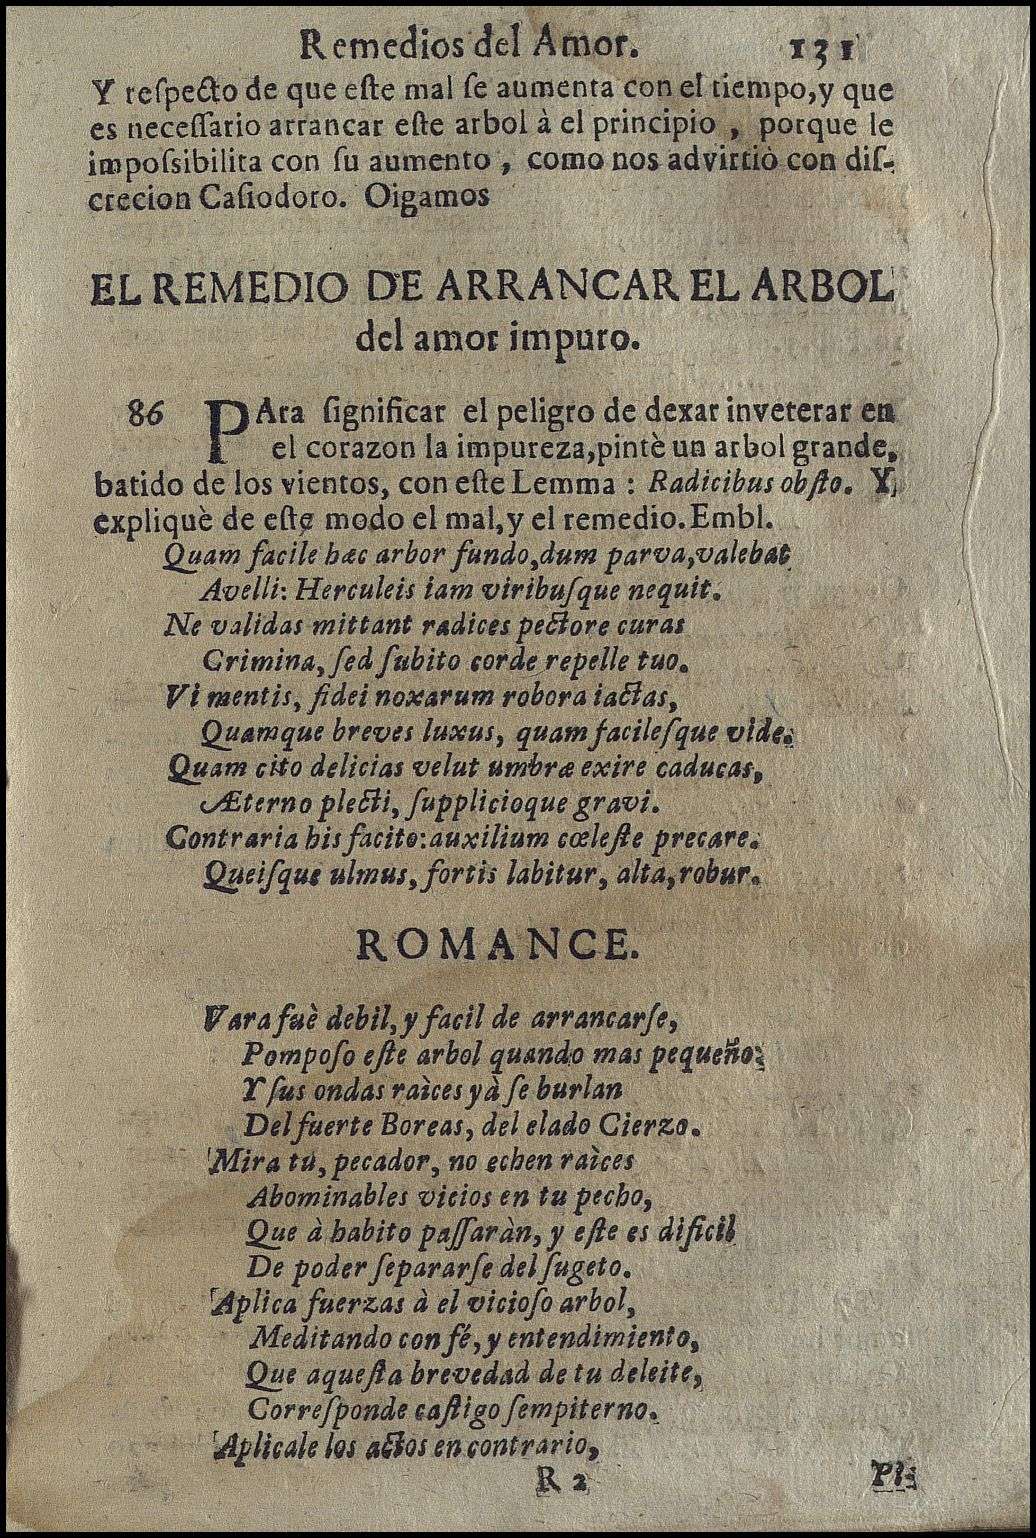 Remedios del Amor. 131
Y reſpecto de que eſte mal ſe aumenta con el tiempo,y que
es neceſſario arrancar eſte arbol à el principio , porque le
impoſsibilita con ſu aumento , como nos advirtiò con diſ-
crecion Caſiodoro. Oigamos
EL REMEDIO DE ARRANCAR EL ARBOL
del amor impuro.
86 PAra ſignificar el peligro de dexar inveterar en
el corazon la impureza,pintè un arbol grande,
batido de los vientos, con eſte Lemma : Radicibus obſto. Y
expliquè de eſte modo el mal,y el remedio.Embl.
Quam facile hæc arbor fundo,dum parva,valebat
Avelli: Herculeis iam viribuſque nequit.
Ne validas mittant radices pectore curas
Crimina, ſed ſubito corde repelle tuo.
Vi mentis, fidei noxarum robora iactas,
Quamque breves luxus, quam facileſque vide.
Quam cito delicias velut umbræ exire caducas,
Æterno plecti, ſupplicioque gravi.
Contraria his facito:auxilium cœleſte precare.
Queiſque ulmus, fortis labitur, alta,robur.
ROMANCE.
Vara fuè debil, y facil de arrancarſe,
Pompoſo eſte arbol quando mas pequeño:
Y ſus ondas raìces yà ſe burlan
Del fuerte Boreas, del elado Cierzo.
Mira tu, pecador, no echen raìces
Abominables vicios en tu pecho,
Que à habito paſſaràn, y eſte es dificil
De poder ſepararſe del ſugeto.
Aplica fuerzas à el vicioſo arbol,
Meditando con fé, y entendimiento,
Que aqueſta brevedad de tu deleite,
Correſponde caſtigo ſempiterno.
Aplicale los actos en contrario,
R 2 Pi-